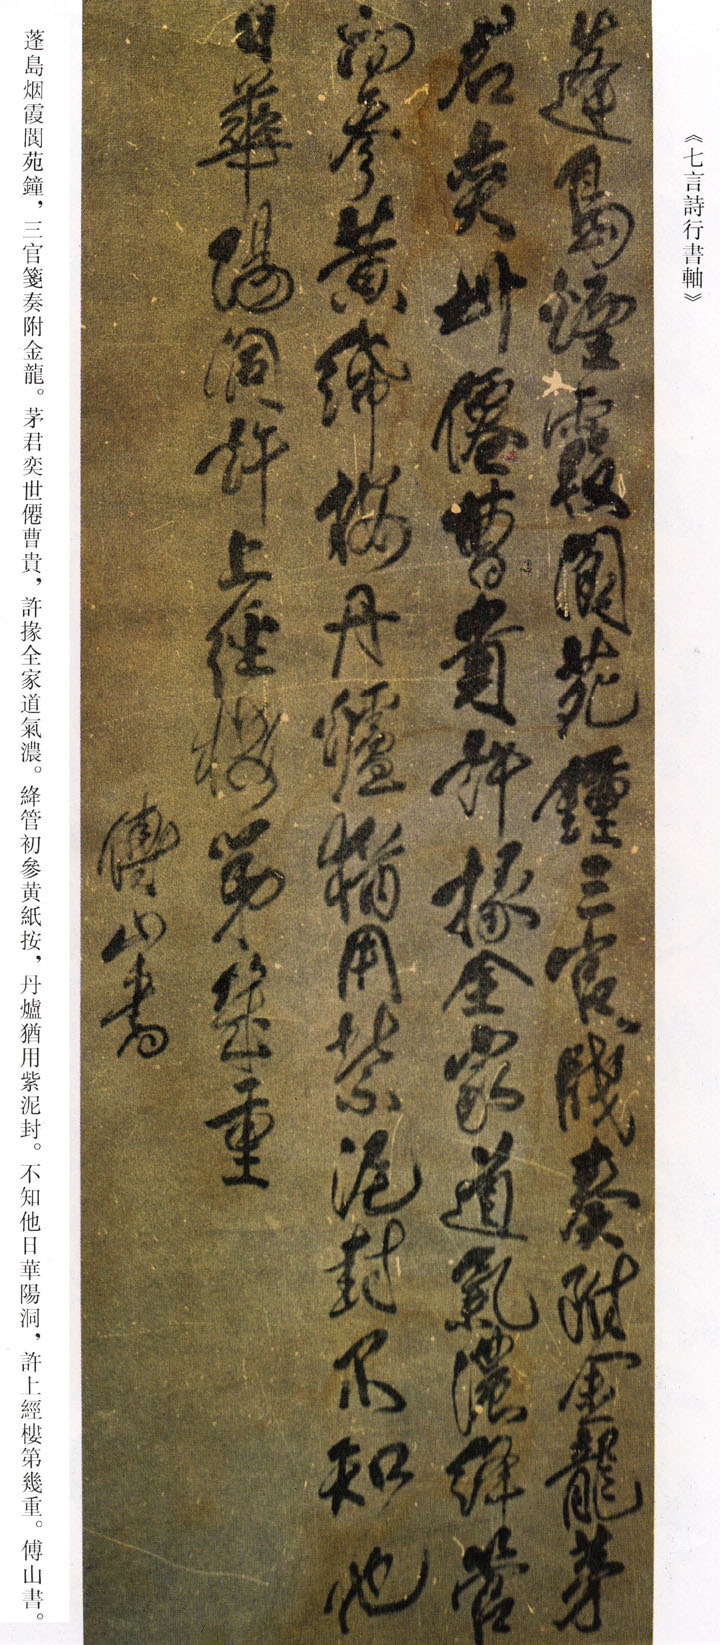 《七言詩行書軸》
蓬島煙霞閬苑鐘三官牋奏附金龍茅
君奕世僊曹貴許掾全家道氣濃絳管
初參黃紙按丹爐猶用紫泥封不知他
日華陽洞許上經樓第幾重
傅山書
蓬島烟霞閬苑鐘，三官箋奏附金龍。茅君奕世僊曹貴，許掾全家道氣濃。絳管初參黄紙按，丹爐猶用紫泥封。不知他日華陽洞，許上經樓第幾重。傅山書。